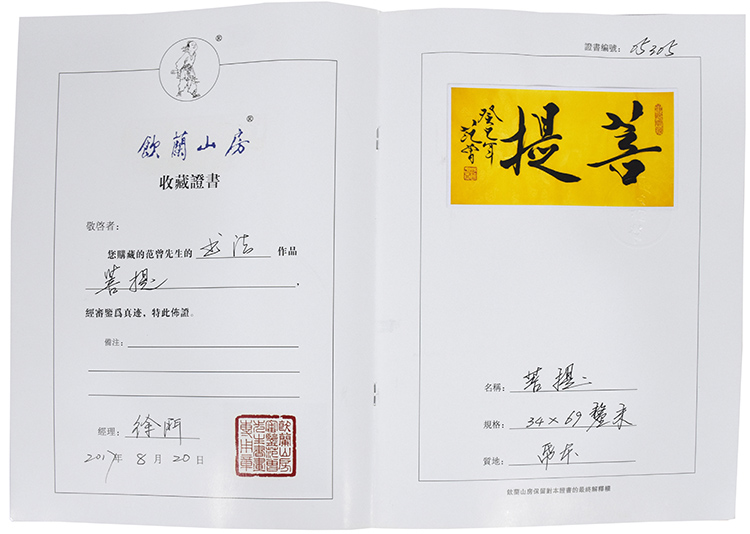 飲蘭山房®
收藏證書
敬啓者：
您購藏的范曾先生的 书法 作品
菩提 .
經審鑒爲真迹，特此佈證。
備注：
經理： 徐
2017年 8 月 20 日
證書編號： 05305
菩提
癸巳年
范曾
名稱： 菩提
規格： 34×69 釐米
質地：
飲蘭山房保留對本證書的最終解釋權